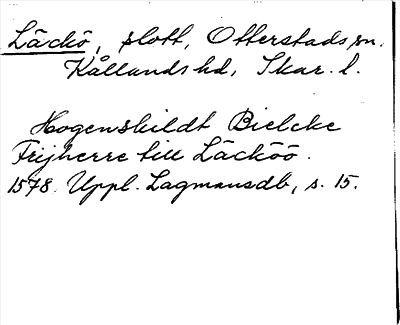 Läckö, slott, Otterstads sn.
Kållands hd, Skar. l.
Hogenskildt Bielcke
Frijherre till Läcköö.
1578. Uppl. Lagmansdb, s. 15.